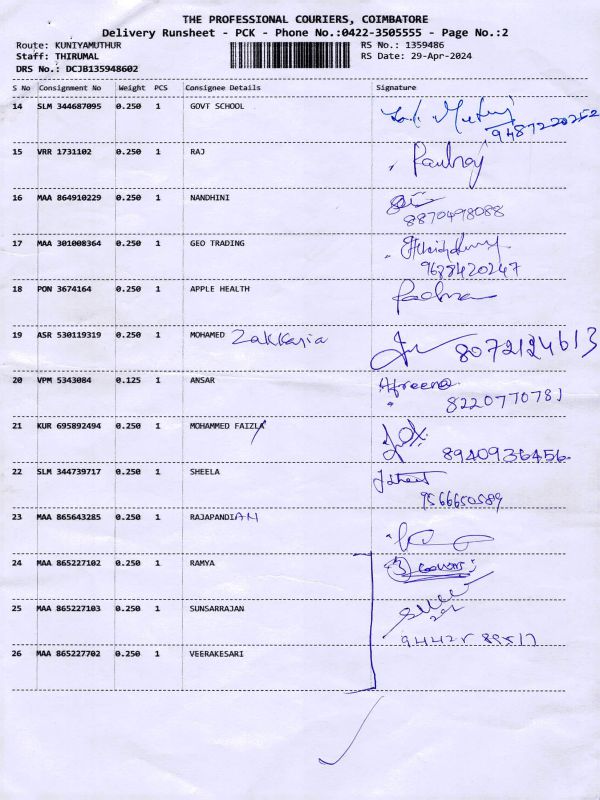 THE PROFESSIONAL COURIERS, COIMBATORE
Delivery Runsheet - PCK - Phone No.:0422-3505555 - Page No.:2
Route: KUNIYAMUTHUR RS No.: 1359486
Staff: THIRUMAL RS Date: 29-Apr-2024
DRS No.: DCJB135948602
S No Consignment No Weight PCS Consignee Details Signature
14 SLM 344687095 0.250 1 GOVT SCHOOL
9487220252
15 VRR 1731102 0.250 1 RAJ Paulraj
16 MAA 864910229 0.250 1 NANDHINI
8870498088
17 MAA 301008364 0.250 1 GEO TRADING
9688420247
18 PON 3674164 0.250 1 APPLE HEALTH Padma
19 ASR 530119319 0.250 1 MOHAMED Zakkaria 8072124613
20 VPM 5343084 0.125 1 ANSAR Afreena
8220770781
21 KUR 695892494 0.250 1 MOHAMMED FAIZLA
8940936456
22 SLM 344739717 0.250 1 SHEELA
9566650589
23 MAA 865643285 0.250 1 RAJAPANDIAN
24 MAA 865227102 0.250 1 RAMYA (3)
25 MAA 865227103 0.250 1 SUNSARRAJAN
26 MAA 865227702 0.250 1 VEERAKESARI